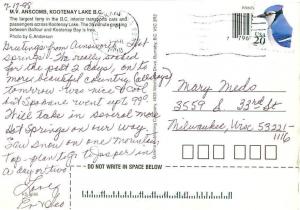 7-17-98
M.V. ANSCOMB, KOOTENAY LAKE B.C.
The largest ferry in the B.C. interior transports cars and
passengers across Kootenay Lake. The
between Balfour and Kootenay Bay is free.
Photo by G. Anderson
Greetings from Ainsworth Hot
Springs. We really soaked
for the past 2 days, on to
more beautiful country (always)
tomorrow. Was nice & cool
but Spokane went up to 99°
Will take in several more
Hot Springs on our way.
Saw snow on one mountain
top - plan to go to Jasper in
a day or two.
Love,
USA
20
1996
Mary Meds
3559 S 33rd St
Milwaukee, Wisc 53221-
1116
DO NOT WRITE IN SPACE BELOW